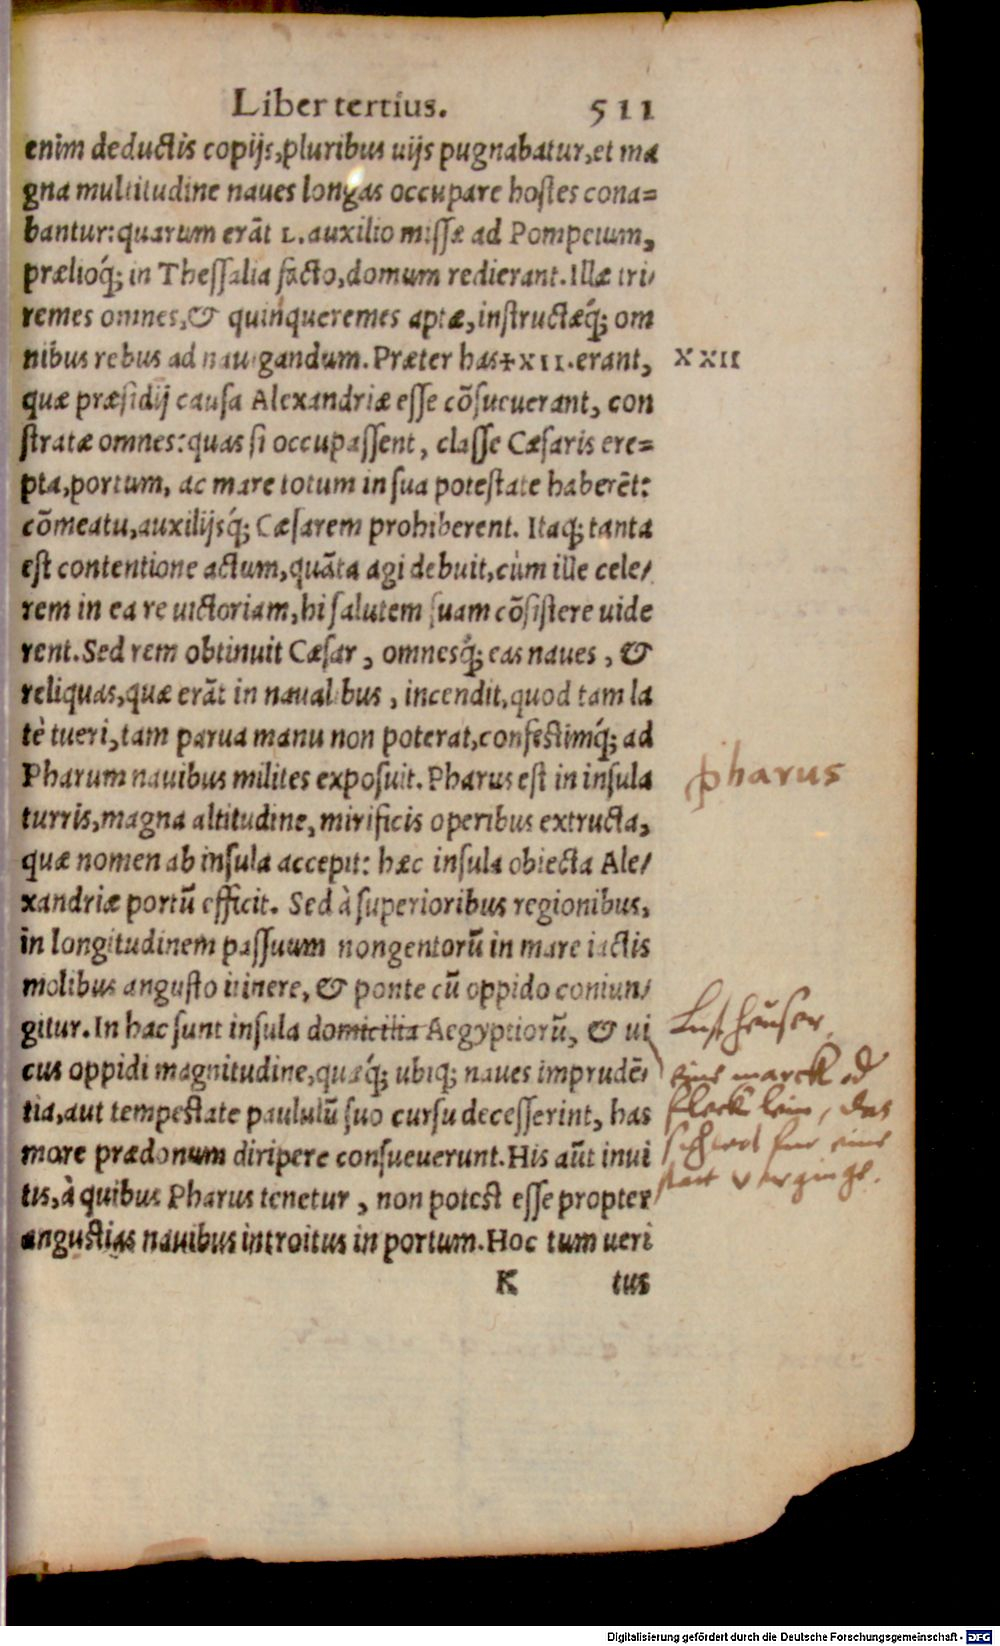 Liber tertius. 511
enim deductis copijs, pluribus uijs pugnabatur, et ma
gna multitudine naues longas occupare hostes cona=
bantur: quarum erāt L. auxilio missæ ad Pompeium,
prælioq́; in Thessalia facto, domum redierant. Illæ tri/
remes omnes, & quinqueremes aptæ, instructæq́; om
nibus rebus ad nauigandum. Præter has + XII. erant,
XXII
quæ præsidij causa Alexandriæ esse cōsueuerant, con
stratæ omnes: quas si occupassent, classe Cæsaris ere=
pta, portum, ac mare totum in sua potestate haberēt:
cōmeatu, auxilijsq́; Cæsarem prohiberent. Itaq; tanta
est contentione actum, quāta agi debuit, cùm ille cele/
rem in ea re uictoriam, hi salutem suam cōsistere uide
rent. Sed rem obtinuit Cæsar, omnesq́; eas naues, &
reliquas, quæ erāt in naualibus, incendit, quod tam la
tè tueri, tam parua manu non poterat, confestimq́; ad
Pharum nauibus milites exposuit. Pharus est in insula
pharus
turris, magna altitudine, mirificis operibus extructa,
quæ nomen ab insula accepit: hæc insula obiecta Ale/
xandriæ portū efficit. Sed à superioribus regionibus,
in longitudinem passuum nongentorū in mare iactis
molibus angusto itinere, & ponte cū oppido coniun/
gitur. In hac sunt insula domicilia Aegyptiorū, & ui
Lust heüser,
cus oppidi magnitudine, quæq́; ubiq; naues imprudē/
eins marck od
tia, aut tempestate paululū suo cursu decesserint, has
flecklein, das
more prædonum diripere consueuerunt. His aūt inui
fur eine
tis, à quibus Pharus tenetur, non potest esse propter
angustias nauibus introitus in portum. Hoc tum ueri
K tus
Digitalisierung gefördert durch die Deutsche Forschungsgemeinschaft - DFG